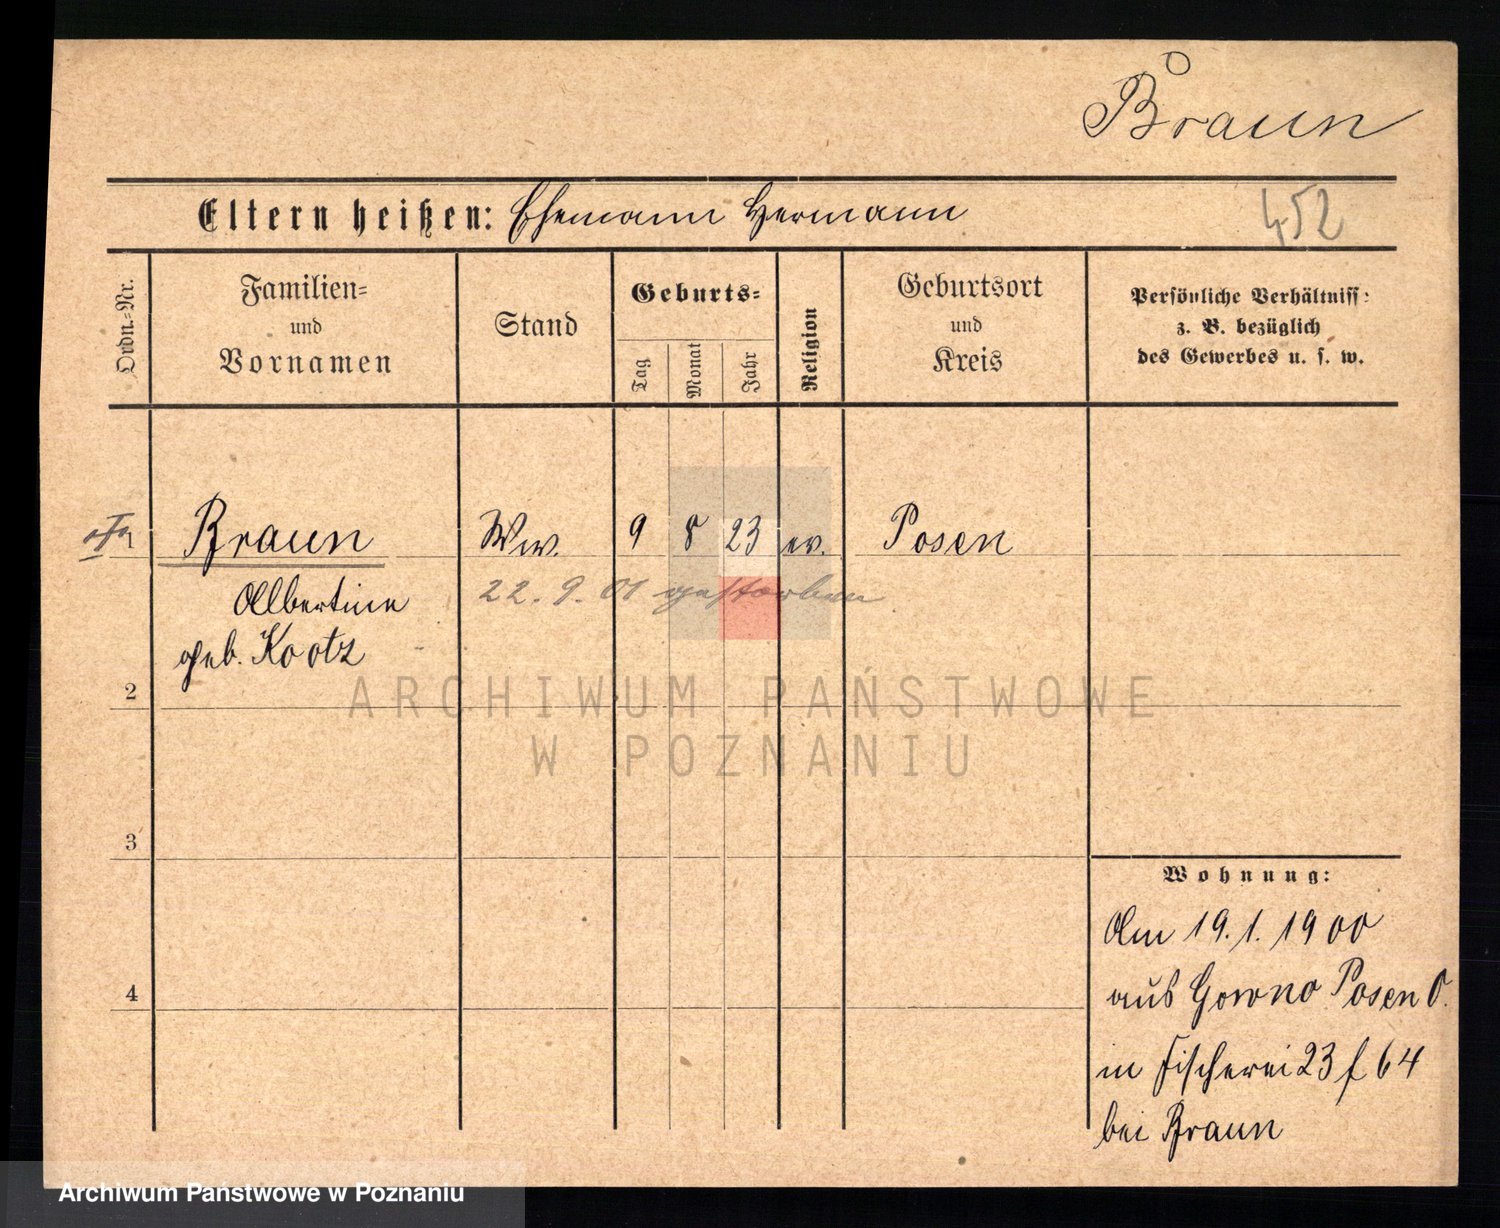 Braun
Eltern heißen: Ehemann Hermann
452
Ordn.-Nr.
Familien-
und
Vornamen
Stand
Geburts-
Tag
Monat
Jahr
Religion
Geburtsort
und
Kreis
Persönliche Verhältniss:
z. B. bezüglich
des Gewerbes u. s. w.
1
Braun
Ww.
9
8
23
ev.
Posen
Albertine
22. 9. 01 gestorben
geb. Kootz
2
ARCHIWUM PAŃSTWOWE
W POZNANIU
3
Wohnung:
Am 19. 1. 1900
aus Gowno Posen O.
in Fischerei 23 f 64
bei Braun
4
Archiwum Państwowe w Poznaniu